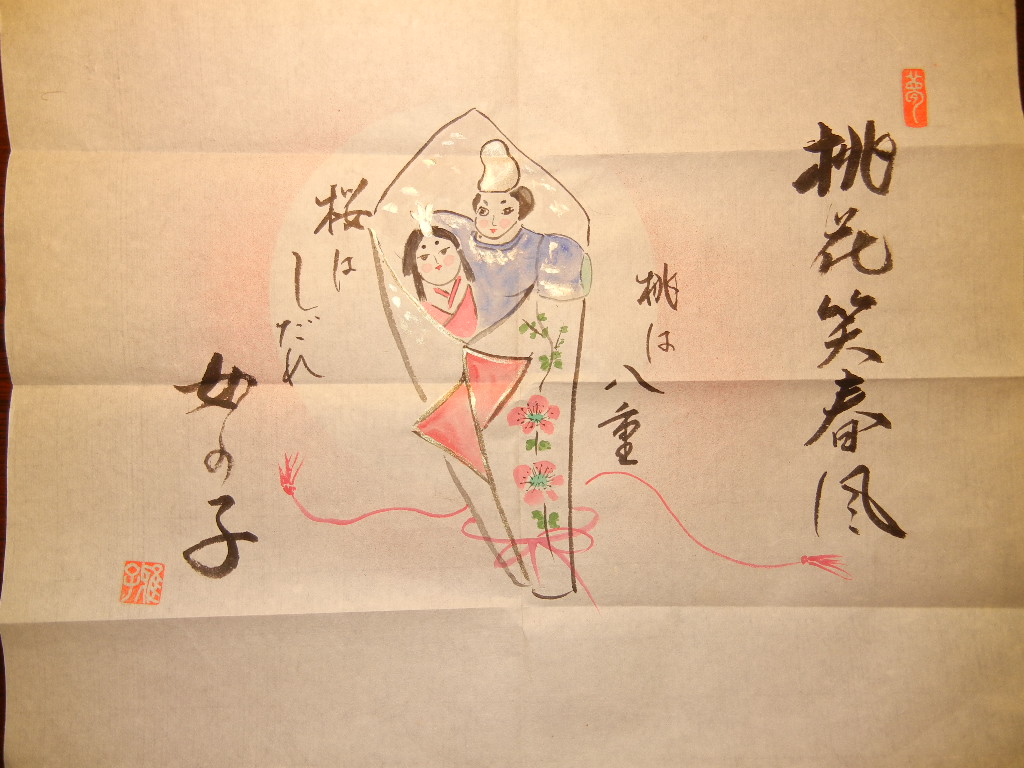 夢
桃花笑春風
桃は
八重
桜は
しだれ
女の子
雅子